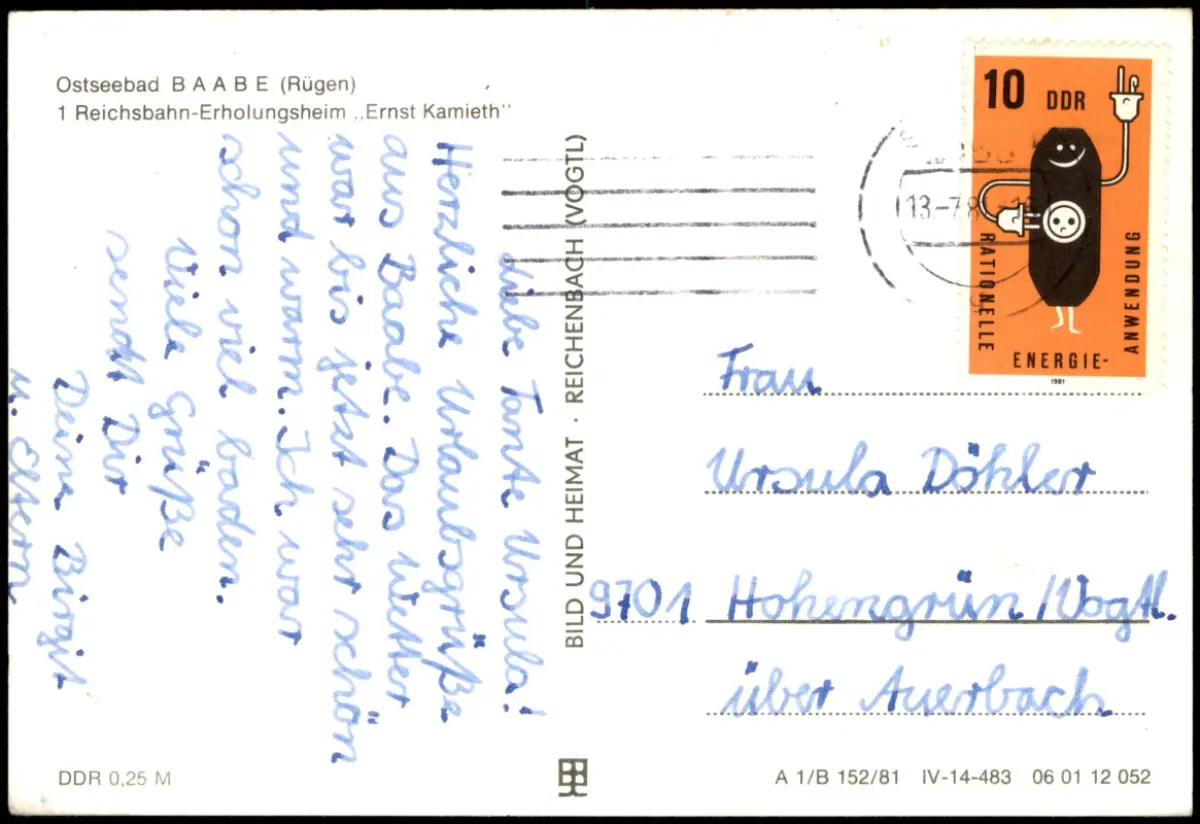 Ostseebad BAABE (Rügen)
1 Reichsbahn-Erholungsheim „Ernst Kamieth"
Liebe Tante Ursula!
Herzliche Urlaubsgrüße
aus Baabe. Das Wetter
war bis jetzt sehr schön
und warm. Ich war
schon viel baden.
Viele Grüße
sendt Dir
Deine Birgit
u. Eltern
BILD UND HEIMAT · REICHENBACH (VOGTL)
10 DDR
RATIONELLE
ENERGIE-
ANWENDUNG
1981
13.-7.8
Frau
Ursula Döhler
9701 Hohengrün/Vogtl.
über Auerbach
DDR 0,25 M
A 1/B 152/81 IV-14-483 06 01 12 052